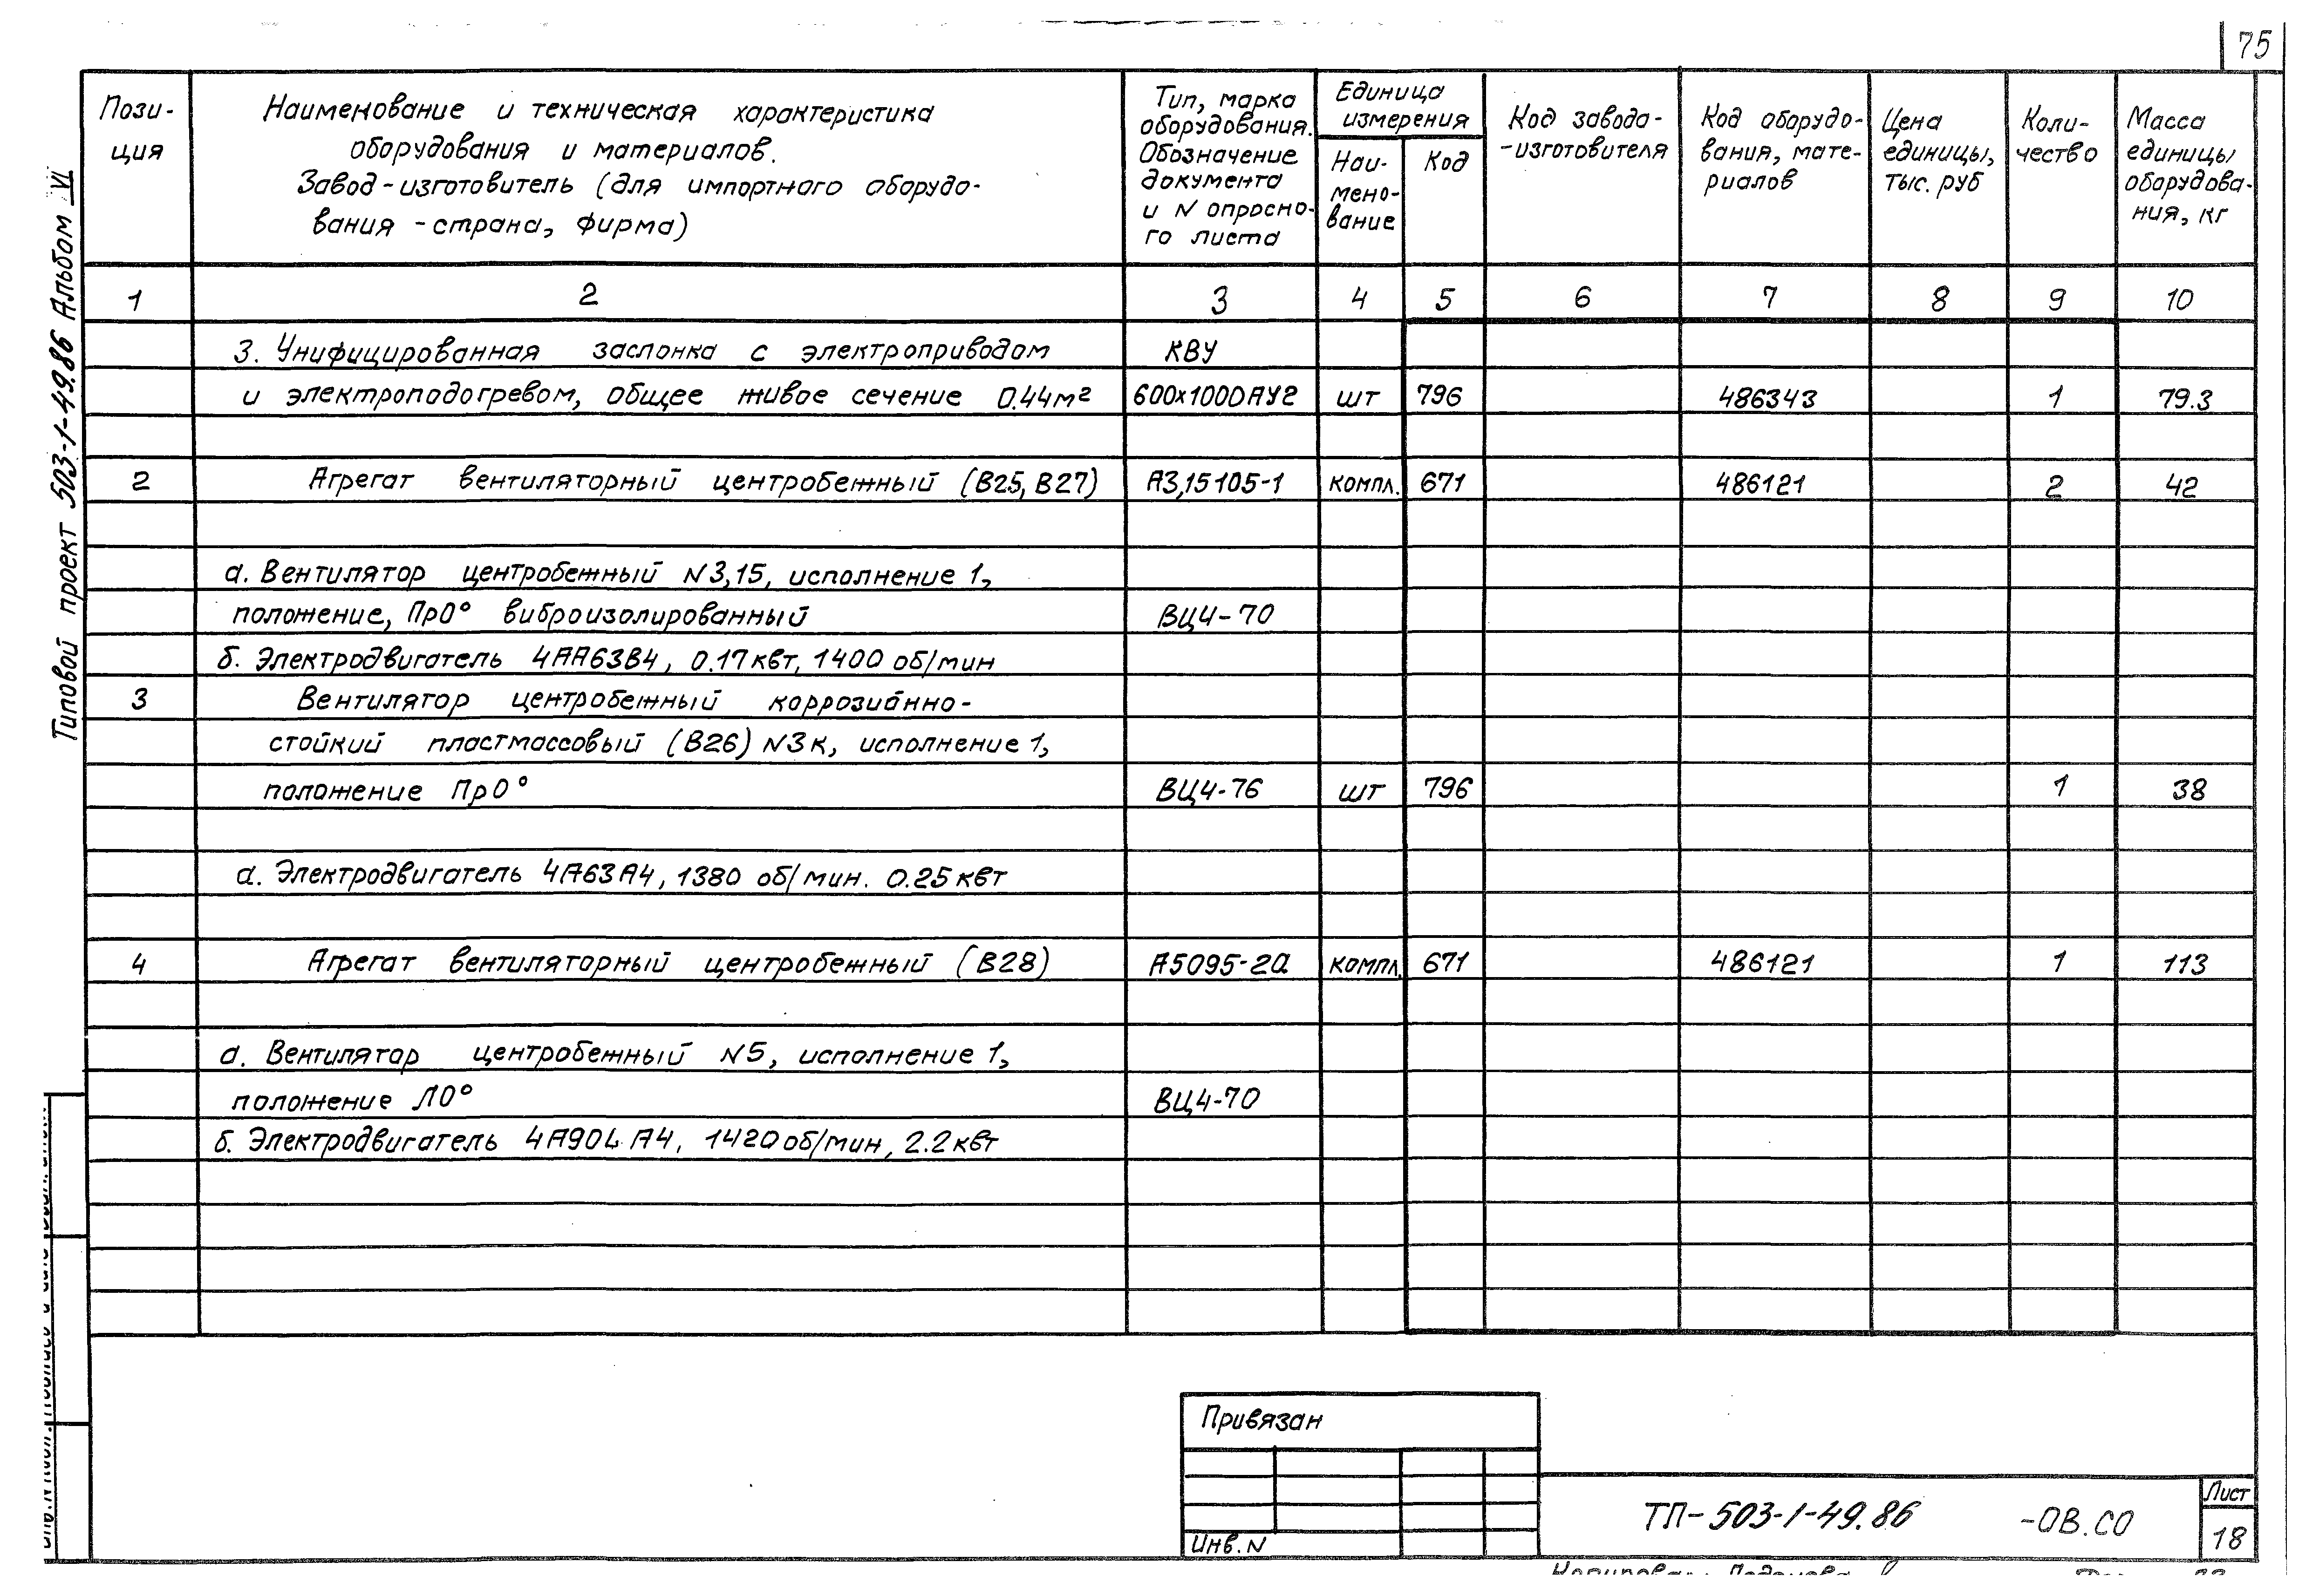 75
Типовой проект 503-1-49.86 Альбом VI
Пози-
ция
Наименование и техническая характеристика
оборудования и материалов.
Завод-изготовитель (для импортного оборудо-
вания - страна, фирма)
Тип, марка
оборудования.
Обозначение
документа
и N опросно-
го листа
Единица
измерения
Наи-
мено-
вание
Код
Код завода-
-изготовителя
Код оборудо-
вания, мате-
риалов
Цена
единицы,
тыс. руб
Коли-
чество
Масса
единицы
оборудова-
ния, кг
1 2 3 4 5 6 7 8 9 10
3. Унифицированная заслонка с электроприводом КВУ
и электроподогревом, общее живое сечение 0.44м² 600х1000АУ2 шт 796 486343 1 79.3
2 Агрегат вентиляторный центробежный (В25, В27) А3,15105-1 компл. 671 486121 2 42
а. Вентилятор центробежный N3,15, исполнение 1,
положение, Пр0° виброизолированный ВЦ4-70
б. Электродвигатель 4АА63В4, 0.17квт, 1400 об/мин
3 Вентилятор центробежный коррозийнно-
стойкий пластмассовый (В26) N3к, исполнение 1,
положение Пр0° ВЦ4-76 шт 796 1 38
а. Электродвигатель 4А63А4, 1380 об/мин. 0.25квт
4 Агрегат вентиляторный центробежный (В28) А5095-2а компл. 671 486121 1 113
а. Вентилятор центробежный N5, исполнение 1,
положение Л0° ВЦ4-70
б. Электродвигатель 4А90LА4, 1420об/мин, 2.2квт
Привязан
Инв. N
ТП-503-1-49.86 -ОВ.СО
Лист
18